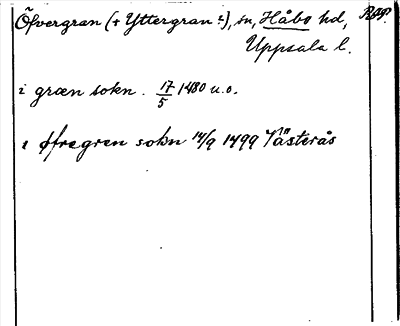 Öfvergran (+ Yttergran ?), sn, Håbo hd,
Uppsala l.
i græn sokn. 17/5 1480 u.o.
i øfregren sokn 14/9 1499 Västerås